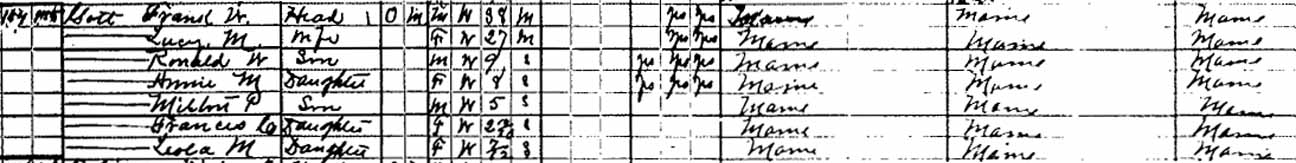 Gott Frank W. Head 1 O M M W 38 M yes yes Maine Maine
Lucy M. Wife F W 27 M yes yes Maine Maine Maine
Ronald W Son M W 9 S yes yes yes Maine Maine Maine
Annie M Daughter F W 8 S yes yes yes Maine Maine Maine
Milton P Son M W 5 S Maine Maine Maine
Frances Daughter F W S Maine Maine Maine
Leola M Daughter F W S Maine Maine Maine